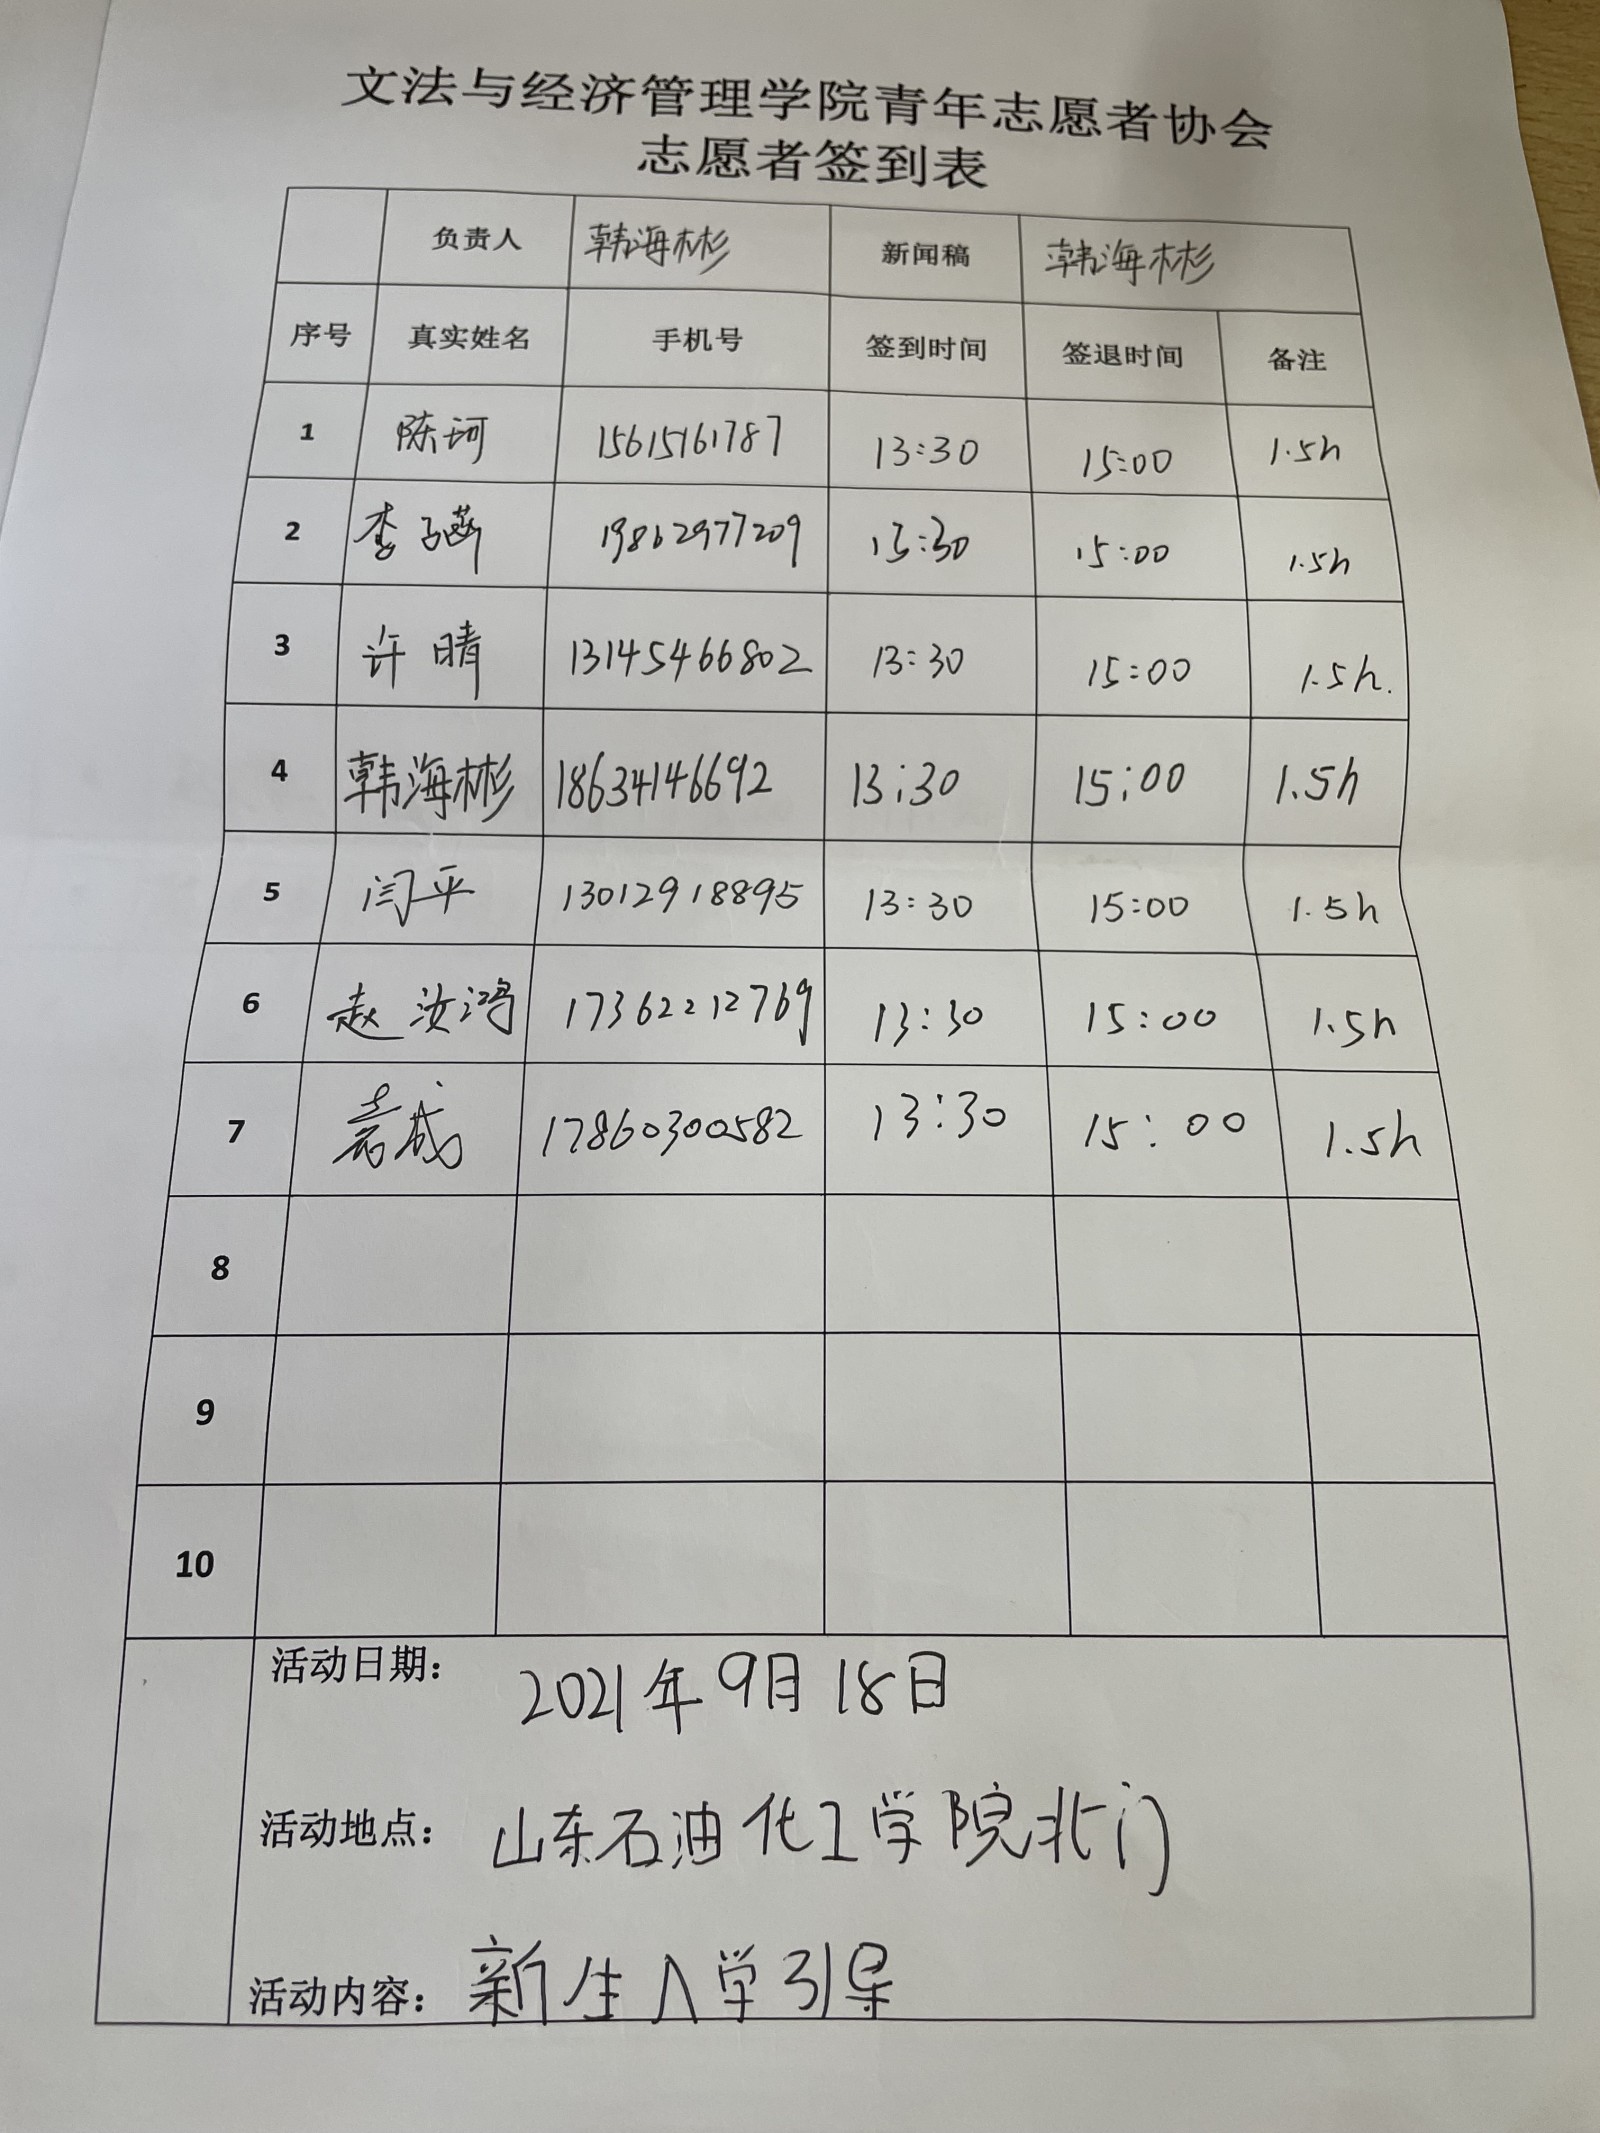 文法与经济管理学院青年志愿者协会
志愿者签到表
负责人 韩海彬 新闻稿 韩海彬
序号 真实姓名 手机号 签到时间 签退时间 备注
1 陈珂 15615161787 13:30 15:00 1.5h
2 李子涵 19862977209 13:30 15:00 1.5h
3 许晴 13145466802 13:30 15:00 1.5h.
4 韩海彬 18634146692 13:30 15:00 1.5h
5 闫平 13012918895 13:30 15:00 1.5h
6 赵汝鸿 17362212769 13:30 15:00 1.5h
7 17860300582 13:30 15:00 1.5h
8
9
10
活动日期： 2021年9月18日
活动地点： 山东石油化工学院北门
活动内容： 新生入学引导